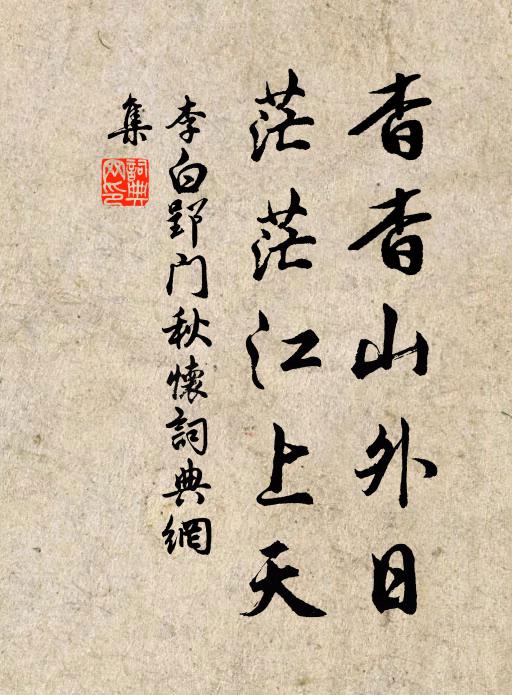 杳杳山外日
茫茫江上天
李白郢门秋懷詞典網
集
詞典網印